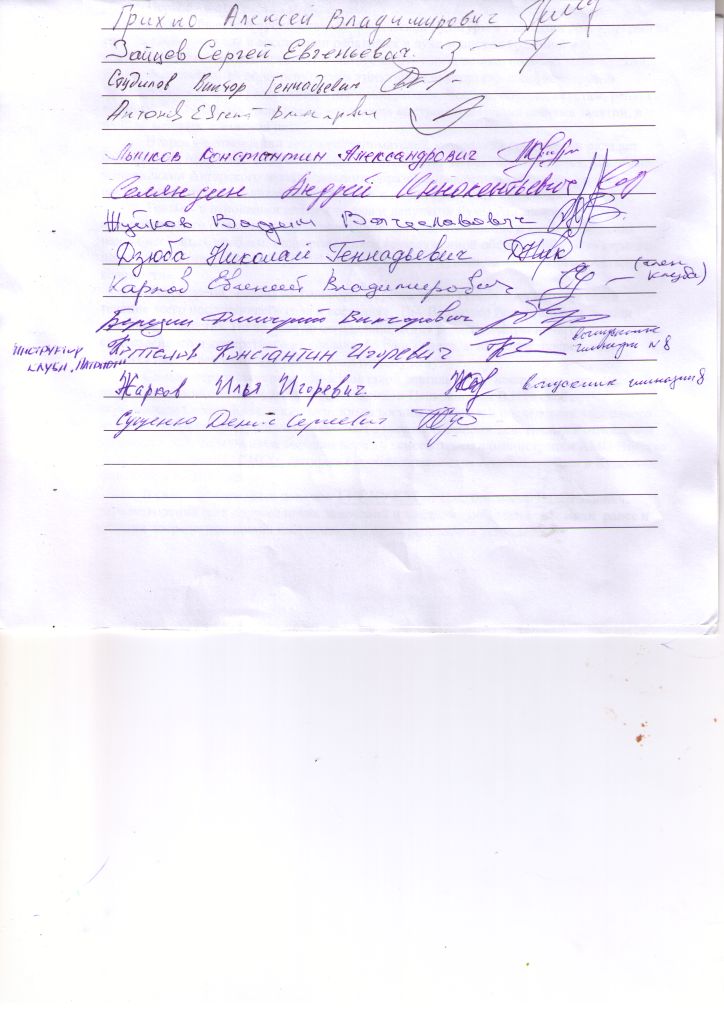 Грихно Алексей Владимирович
Зайцев Сергей Евгеньевич.
Студилов Виктор Геннадьевич
Антонов Евгений
Константин Александрович
Андрей Иннокентьевич
Жуйков Вадим Вячеславович
Дзюба Николай Геннадьевич
(член клуба)
Карпов Евгений Владимирович
Березин Дмитрий Викторович
выпускник гимназии №8
инструктор клуба
Константин Игоревич
Жарков Илья Игоревич. выпускник гимназии 8
Сущенко Денис Сергеевич